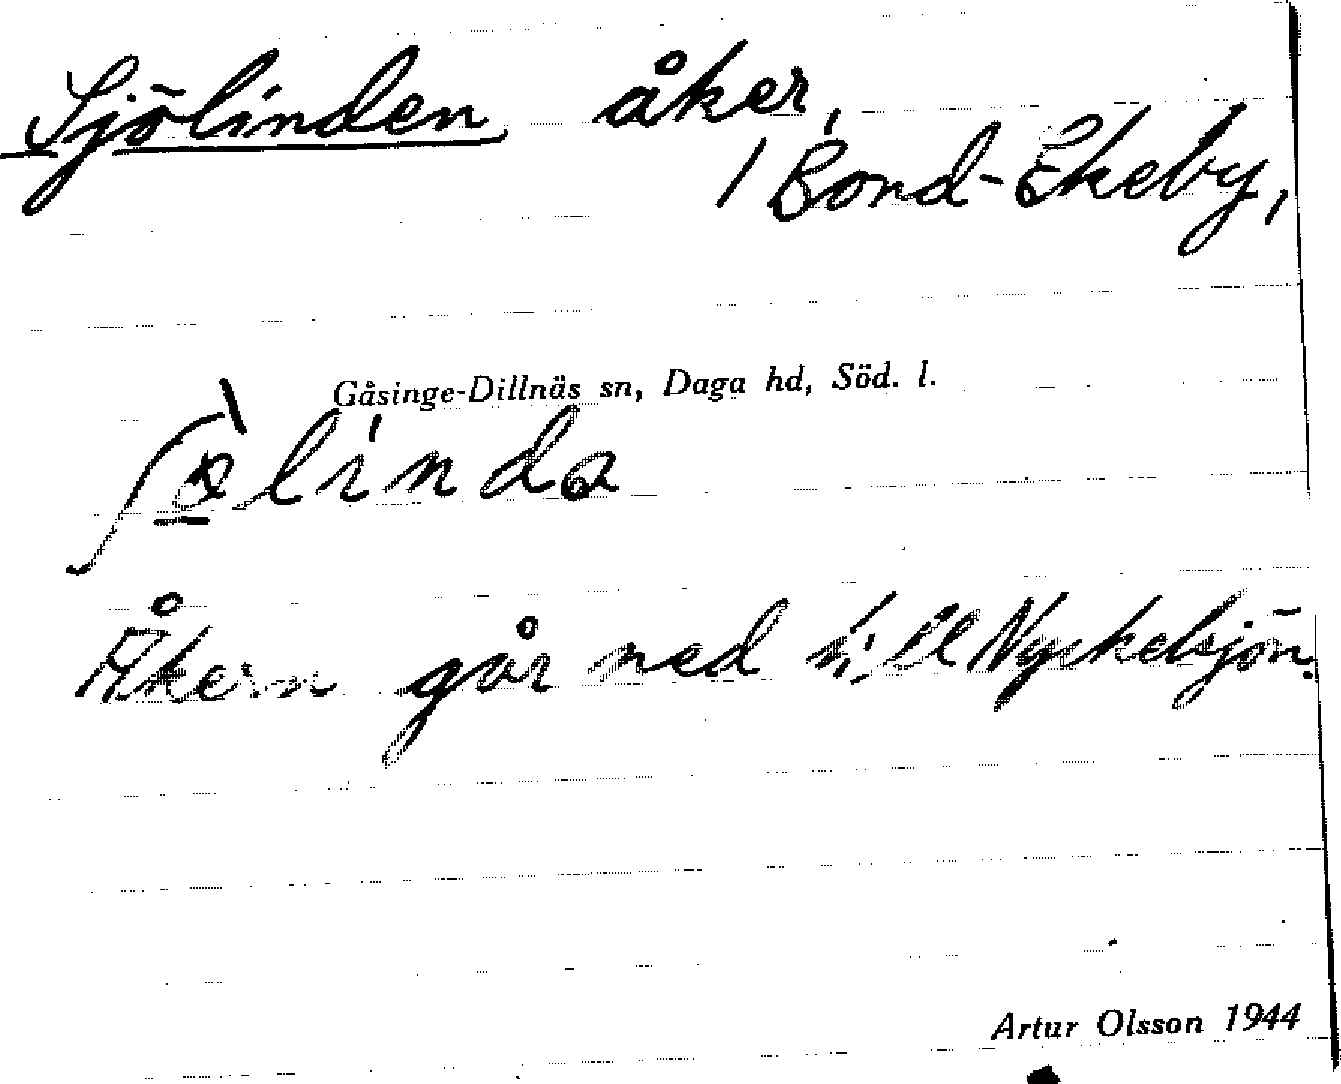 Sjölinden åker,
/ Bond-Ekeby,
Gåsinge-Dillnäs sn, Daga hd, Söd. l.
Åkern går ned till Nyckelsjön.
Artur Olsson 1944